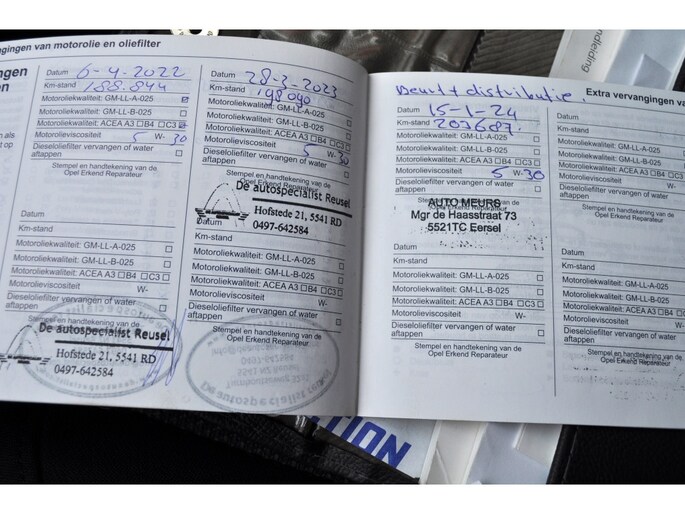 van motorolie en oliefilter
Datum 6-4-2022
Km-stand 188.844
Motoroliekwaliteit: GM-LL-A-025
Motoroliekwaliteit: GM-LL-B-025
Motoroliekwaliteit: ACEA A3 B4 C3
Motorolieviscositeit 5 W- 30
Dieseloliefilter vervangen of water
aftappen
Stempel en handtekening van de
Opel Erkend Reparateur
Datum
Km-stand
Motoroliekwaliteit: GM-LL-A-025
Motoroliekwaliteit: GM-LL-B-025
Motoroliekwaliteit: ACEA A3 B4 C3
Motorolieviscositeit W-
Dieseloliefilter vervangen of water
aftappen
Stempel en handtekening van de
De autospecialist Reusel
Hofstede 21, 5541 RD
0497-642584
Datum 28-3-2023
Km-stand 198040
Motoroliekwaliteit: GM-LL-A-025
Motoroliekwaliteit: GM-LL-B-025
Motoroliekwaliteit: ACEA A3 B4 C3
Motorolieviscositeit 5 W- 30
Dieseloliefilter vervangen of water
aftappen
Stempel en handtekening van de
Opel Erkend Reparateur
De autospecialist Reusel
Hofstede 21, 5541 RD
0497-642584
Datum
Km-stand
Motoroliekwaliteit: GM-LL-A-025
Motoroliekwaliteit: GM-LL-B-025
Motoroliekwaliteit: ACEA A3 B4 C3
Motorolieviscositeit W-
Dieseloliefilter vervangen of water
aftappen
Stempel en handtekening van de
Opel Erkend Reparateur
Beurt + distributie.
Extra vervangingen
Datum 15-1-24
Km-stand 203687.
Motoroliekwaliteit: GM-LL-A-025
Motoroliekwaliteit: GM-LL-B-025
Motoroliekwaliteit: ACEA A3 B4 C3
Motorolieviscositeit 5 W- 30
Dieseloliefilter vervangen of water
aftappen
Stempel en handtekening van de
Opel Erkend Reparateur
AUTO MEURS
Mgr de Haasstraat 73
5521TC Eersel
Datum
Km-stand
Motoroliekwaliteit: GM-LL-A-025
Motoroliekwaliteit: GM-LL-B-025
Motoroliekwaliteit: ACEA A3 B4 C3
Motorolieviscositeit W-
Dieseloliefilter vervangen of water
aftappen
Stempel en handtekening van de
Opel Erkend Reparateur
Datum
Km-stand
Motoroliekwaliteit: GM-LL-A-025
Motoroliekwaliteit: GM-LL-B-025
Motoroliekwaliteit: ACEA A3
Motorolieviscositeit
Dieseloliefilter vervangen of
aftappen
Stempel en handtekening van
Opel Erkend Reparateur
Datum
Km-stand
Motoroliekwaliteit: GM-LL-A-025
Motoroliekwaliteit: GM-LL-B-025
Motoroliekwaliteit: ACEA A3
Motorolieviscositeit
Dieseloliefilter vervangen of
aftappen
Stempel en handtekening van
Opel Erkend Reparateur